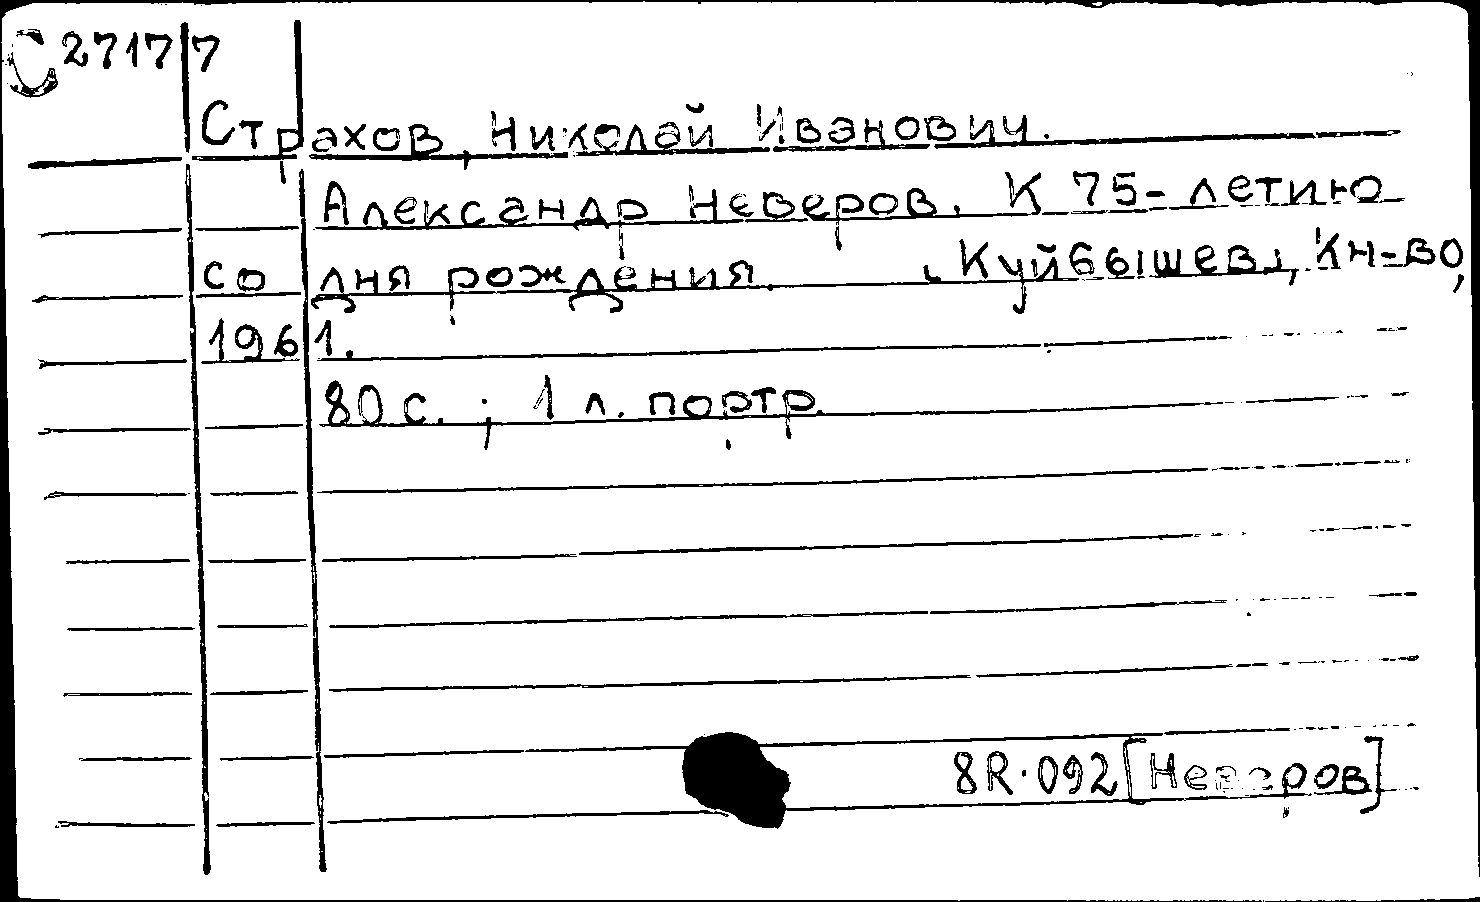 С 27177
Страхов, Николай Иванович.
Александр Неверов. К 75-летию
со дня рождения. Куйбышев, Кн-во,
1961.
80 с. ; 1 л. портр.
8R·092[Неверов]